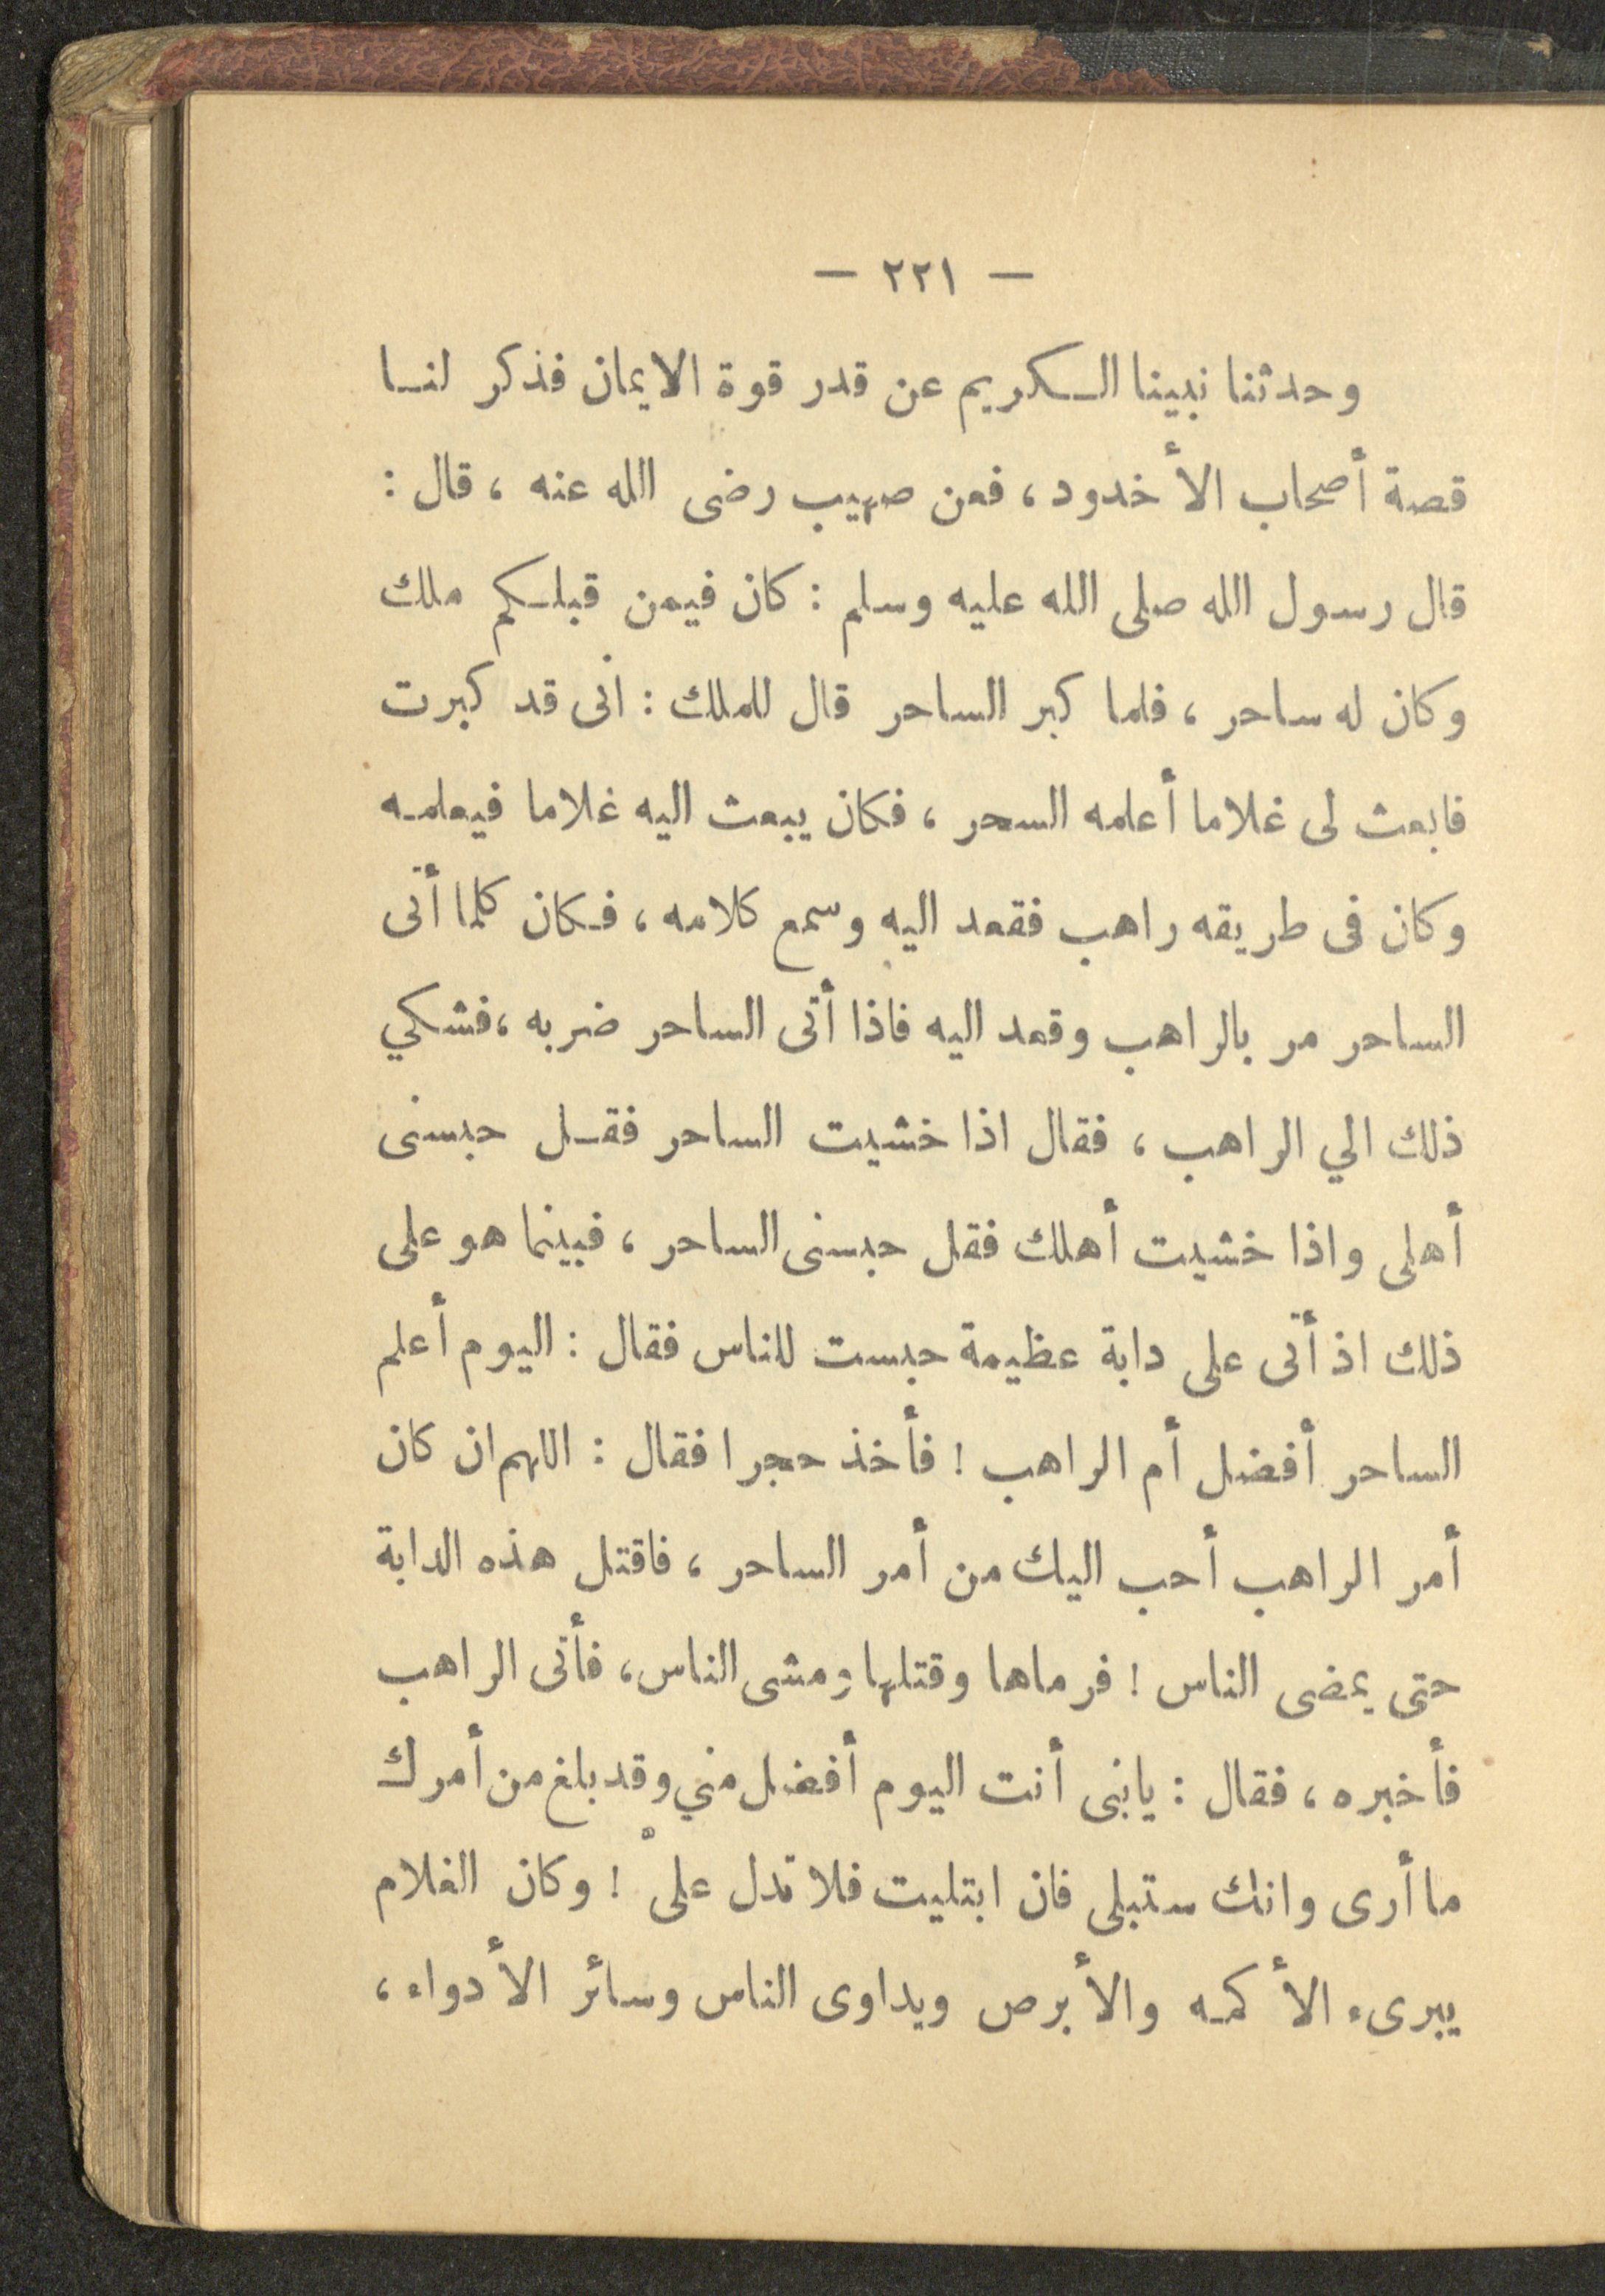 — ٢٢١ —
وحدثنا نبينا الكريم عن قدر قوة الايمان فذكر لنا
قصة أصحاب الأخدود ، فعن صهيب رضى الله عنه ، قال :
قال رسول الله صلى الله عليه وسلم : كان فيمن قبلكم ملك
وكان له ساحر ، فلما كبر الساحر قال للملك : انى قد كبرت
فابعث لى غلاما أعلمه السحر ، فكان يبعث اليه غلاما فيعلمه
وكان فى طريقه راهب فقعد اليه وسمع كلامه ، فكان كلما أتى
الساحر مر بالراهب وقعد اليه فاذا أتى الساحر ضربه ، فشكي
ذلك الي الراهب ، فقال اذا خشيت الساحر فقل حبسنى
أهلى واذا خشيت أهلك فقل حبسنى الساحر ، فبينما هو على
ذلك اذ أتى على دابة عظيمة حبست للناس فقال : اليوم أعلم
الساحر أفضل أم الراهب ! فأخذ حجرا فقال : اللهم ان كان
أمر الراهب أحب اليك من أمر الساحر ، فاقتل هذه الدابة
حتى يمضى الناس ! فرماها وقتلها ومشى الناس ، فأتى الراهب
فأخبره ، فقال : يابنى أنت اليوم أفضل مني وقد بلغ من أمرك
ما أرى وانك ستبلى فان ابتليت فلا تدل علىّ ! وكان الغلام
يبرىء الأكمه والأبرص ويداوى الناس وسائر الأدواء ،